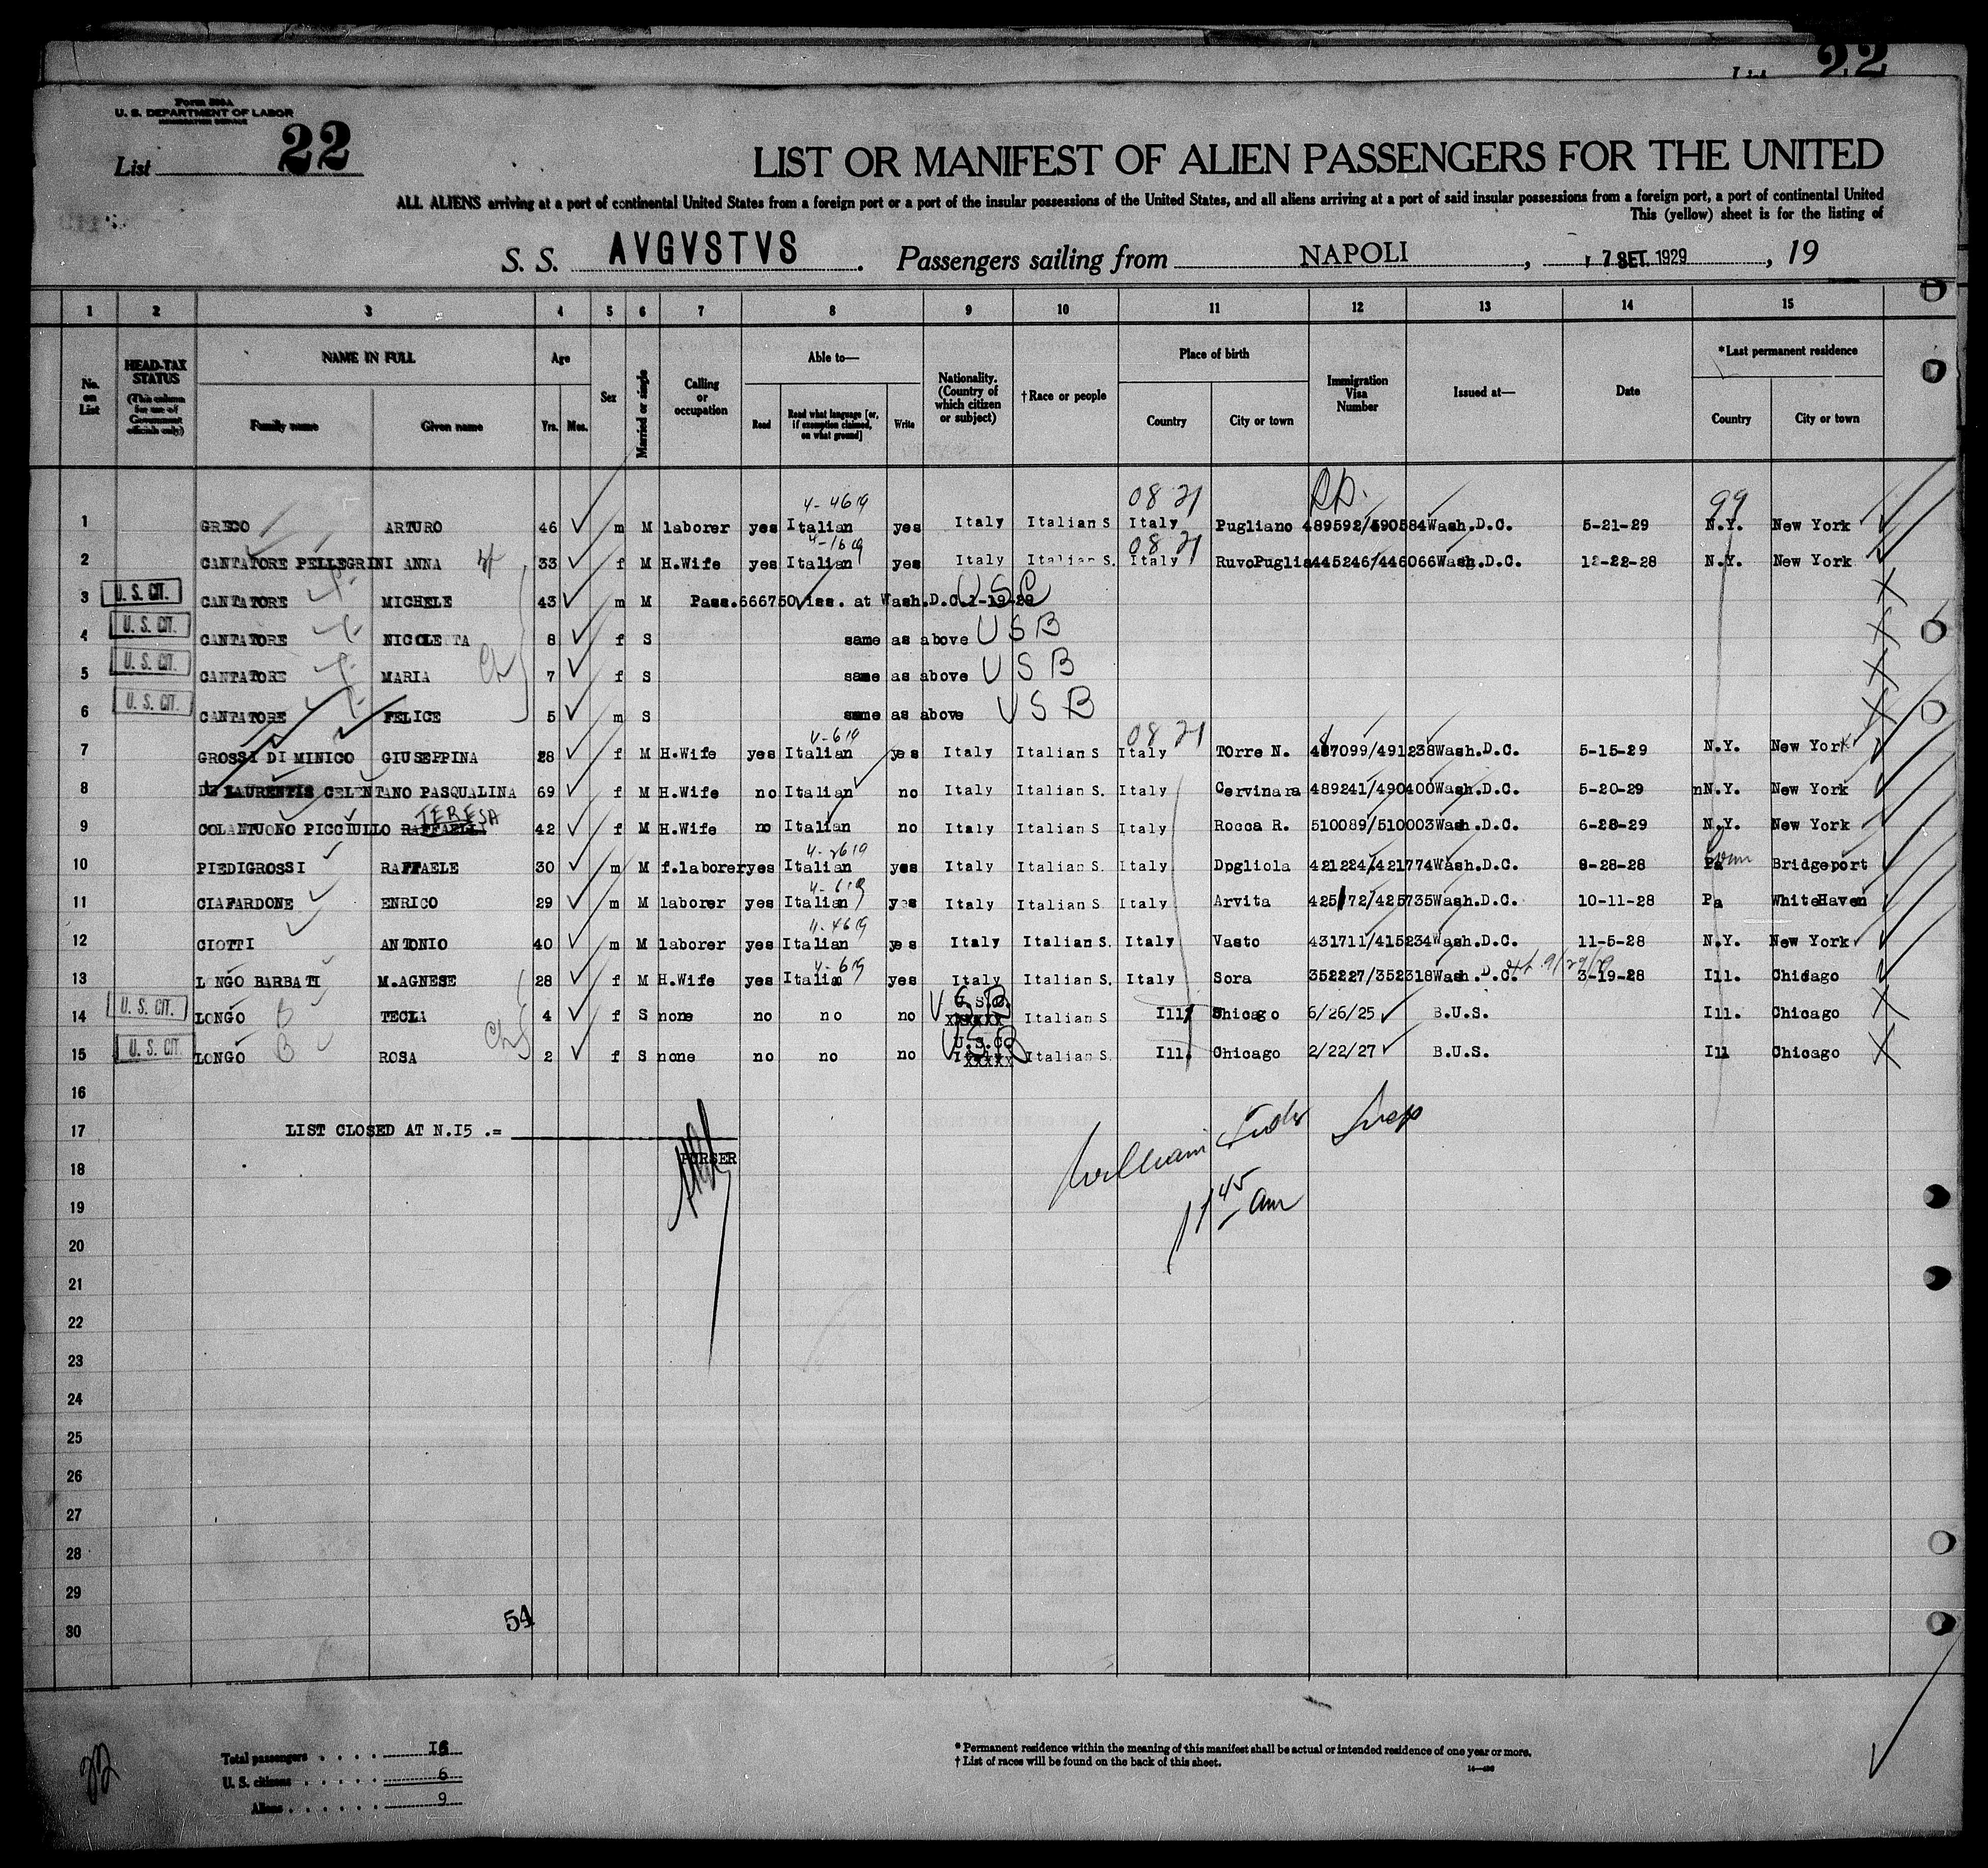 22
Form 500A
U. S. DEPARTMENT OF LABOR
IMMIGRATION SERVICE
List 22
LIST OR MANIFEST OF ALIEN PASSENGERS FOR THE UNITED
ALL ALIENS arriving at a port of continental United States from a foreign port or a port of the insular possessions of the United States, and all aliens arriving at a port of said insular possessions from a foreign port, a port of continental United
This (yellow) sheet is for the listing of
S. S. AVGVSTVS. Passengers sailing from NAPOLI, 7 SET. 1929, 19
1 2 3 4 5 6 7 8 9 10 11 12 13 14 15
No. on List
HEAD-TAX STATUS (This column for use of Government officials only)
NAME IN FULL
Family name Given name
Age
Yrs. Mos.
Sex
Married or single
Calling or occupation
Able to—
Read Read what language [or, if exemption claimed, on what ground] Write
Nationality. (Country of which citizen or subject)
†Race or people
Place of birth
Country City or town
Immigration Visa Number
Issued at—
Date
*Last permanent residence
Country City or town
4-4619 08 21 99
1 GRECO ARTURO 46 m M laborer yes Italian yes Italy Italian S Italy Pugliano 489592/590584 Wash.D.C. 5-21-29 N.Y. New York
08 21
2 CANTATORE PELLEGRINI ANNA 33 f M H.Wife yes Italian yes Italy Italian S. Italy RuvoPuglia 445246/446066 Wash.D.C. 12-22-28 N.Y. New York
3 U. S. CIT. CANTATORE MICHELE 43 m M Pass.666750 iss. at Wash.D.C. 1-19-29 USC
4 U. S. CIT. CANTATORE NICOLETTA 8 f S same as above USB
5 U. S. CIT. CANTATORE MARIA 7 f S same as above USB
6 U. S. CIT. CANTATORE FELICE 5 m S same as above USB
4-619 08 21
7 GROSSI DI MINICO GIUSEPPINA 28 f M H.Wife yes Italian yes Italy Italian S Italy TOrre N. 487099/491238 Wash.D.C. 5-15-29 N.Y. New York
8 DE LAURENTIS CELENTANO PASQUALINA 69 f M H.Wife no Italian no Italy Italian S. Italy Cervinara 489241/490400 Wash.D.C. 5-20-29 nN.Y. New York
TERESA
9 COLANTUONO PICCIULLO RAFFAELLI 42 f M H.Wife no Italian no Italy Italian S Italy Rocca R. 510089/510003 Wash.D.C. 6-28-29 N.Y. New York
4-2619
10 PIEDIGROSSI RAFFAELE 30 m M f.laborer yes Italian yes Italy Italian S. Italy Dogliola 421224/421774 Wash.D.C. 9-28-28 Pa Bridgeport
4-619
11 CIAFARDONE ENRICO 29 m M laborer yes Italian yes Italy Italian S. Italy Arvita 425172/425735 Wash.D.C. 10-11-28 Pa WhiteHaven
4-4619
12 CIOTTI ANTONIO 40 m M laborer yes Italian yes Italy Italian S. Italy Vasto 431711/415234 Wash.D.C. 11-5-28 N.Y. New York
4-619
13 LONGO BARBATI M.AGNESE 28 f M H.Wife yes Italian yes Italy Italian S. Italy Sora 352227/352318 Wash.D.C. 3-19-28 Ill. Chicago
14 U. S. CIT. LONGO TECLA 4 f S none no no no U.S.C. xxxxx Italian S Ill. Chicago 6/26/25 B.U.S. Ill. Chicago
15 U. S. CIT. LONGO ROSA 2 f S none no no no U.S.C. Italy xxxxx Italian S. Ill. Chicago 2/22/27 B.U.S. Ill Chicago
16
17 LIST CLOSED AT N.I5 .=
PURSER
18
19 11 45 am
20
21
22
23
24
25
26
27
28
29
30
54
Total passengers . . . .
U. S. citizens . . . . . 6
Aliens . . . . . . 9
* Permanent residence within the meaning of this manifest shall be actual or intended residence of one year or more.
† List of races will be found on the back of this sheet.